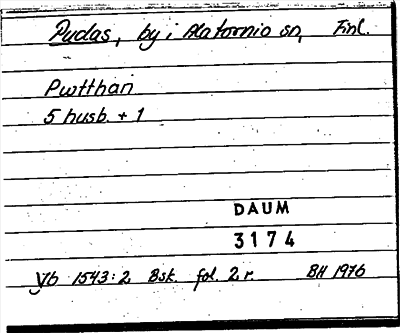 Pudas, by i Alatornio sn, Finl.
Pwtthan
5 husb. + 1
DAUM
3174
Vb 1543:2 Bsk. fol. 2 r. BH 1976